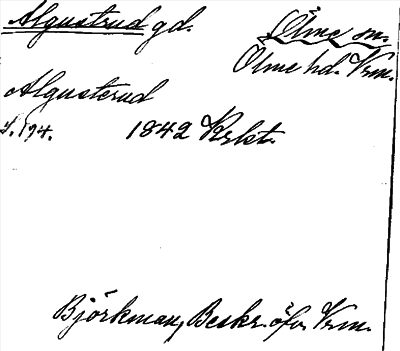 Algustrud gd. Ölme sn.
Ölme hd. Vrm.
Algusterud
s. 194. 1842 Krkt.
Björkman, Beskr. öfver Vrm.